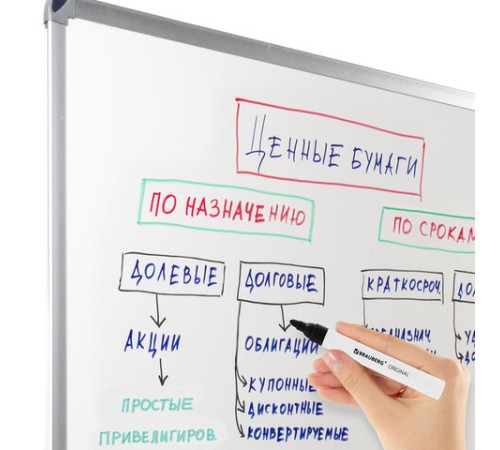 ЦЕННЫЕ БУМАГИ
ПО НАЗНАЧЕНИЮ
ПО СРОКАМ
ДОЛЕВЫЕ
ДОЛГОВЫЕ
КРАТКОСРОЧ.
АКЦИИ
ОБЛИГАЦИ
КУПОННЫЕ
ДИСКОНТНЫЕ
КОНВЕРТИРУЕМЫЕ
ПРОСТЫЕ
ПРИВЕЛИГИРОВ.
BRAUBERG ORIGINAL